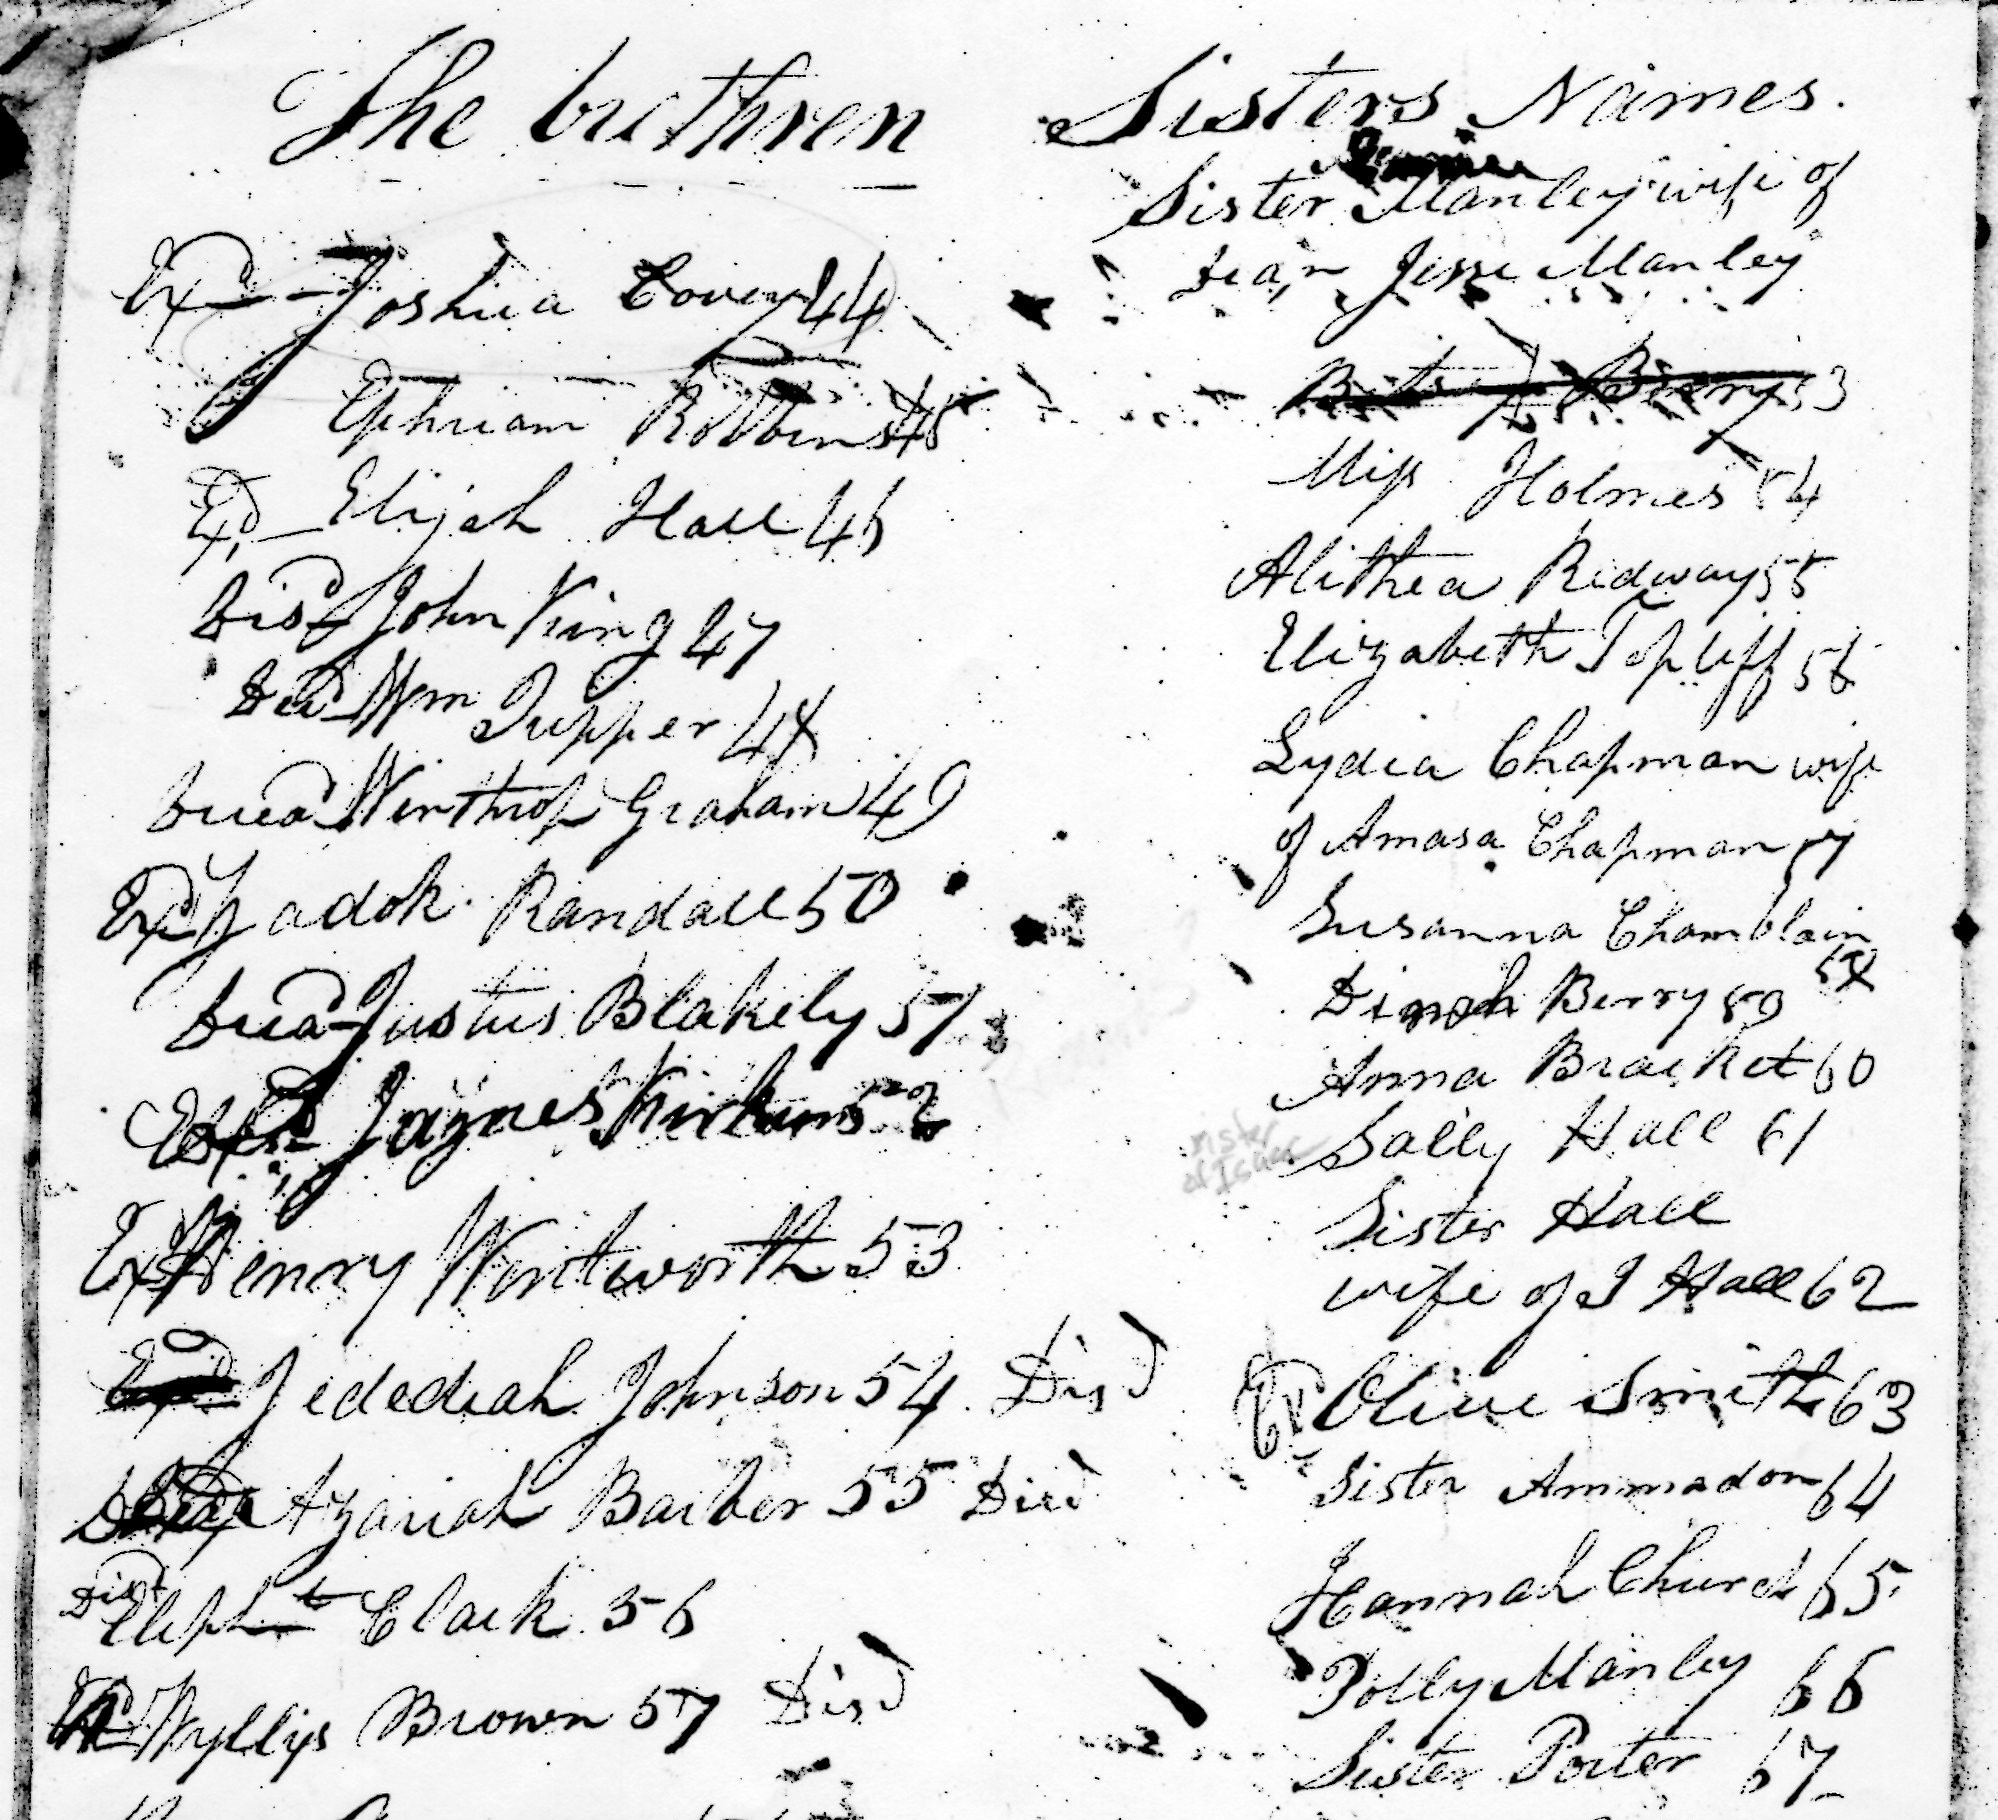 The brethren
Exd Joshua Covey 44
Ephriam Robbins 45
Exd Elijah Hall 46
Disd John King 47
Ded Wm Tupper 48
Died Winthrop Graham 49
Exd Zadok Randall 50
Died Justus Blakely 51
Exd 52
Exd Henry Wentworth 53
Jedediah Johnson 54 Disd
Azariah Barber 55 Died
Disd Eliph t Clark 56
Wyllys Brown 57 Disd
Sisters Names.
Sister Manley wife of
Dea,n Jesse Manley
Betsy Berry 53
Miss Holmes 54
Alithea Ridway 55
Elizabeth Topliff 56
Lydia Chapman wife
of Amasa Chapman 57
Susanna Chamblain
58
Dinah Berry 59
Anna Bracket 60
sister
of Isaac
Sally Hall 61
Sister Hall
wife of I Hall 62
Ex Olive Smith 63
Sister Ammadon 64
Hannah Church 65
Polly Manley 66
Sister Porter 67